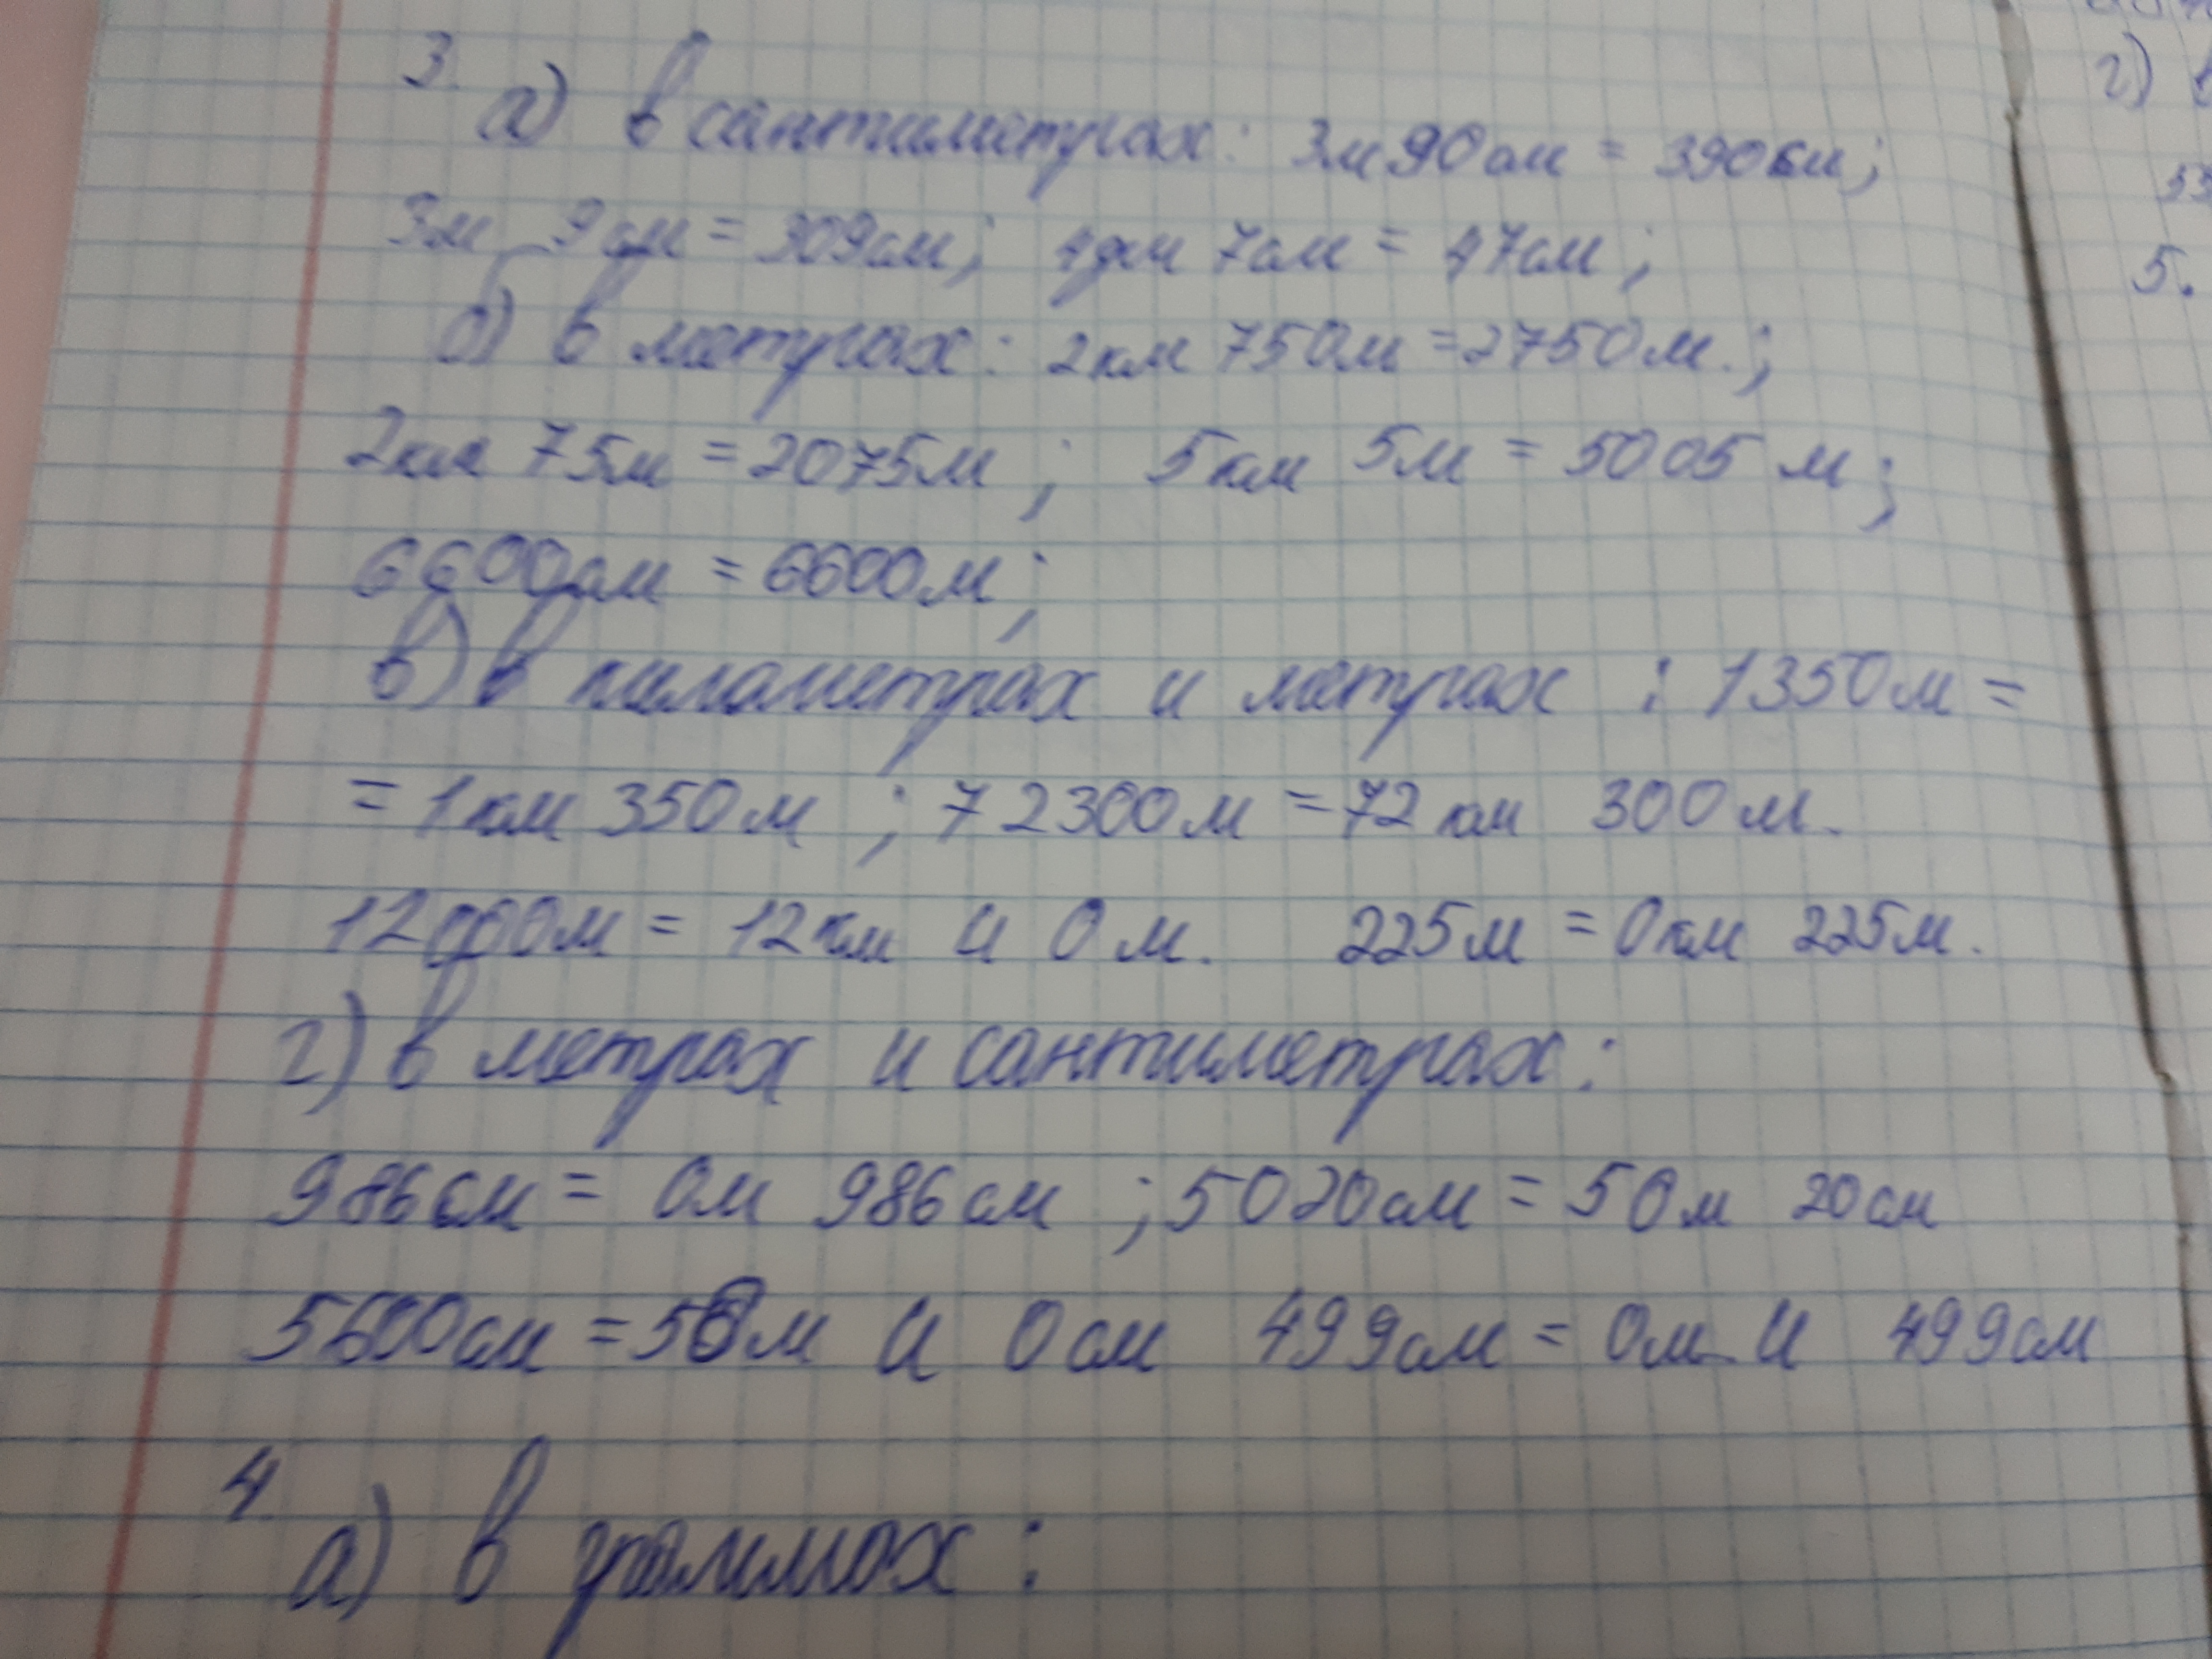 3.
а) в сантиметрах: 3м 90см = 390см;
3м 9см = 309см; 4дм 7см = 47см;
б) в метрах: 2км 750м = 2750м.;
2км 75м = 2075м; 5км 5м = 5005 м;
6600см = 6600м;
в) в километрах и метрах : 1350м =
= 1км 350м ; 72300м = 72 км 300м.
12000м = 12км и 0м. 225м = 0км 225м.
г) в метрах и сантиметрах:
986см = 0м 986см ; 5020см = 50м 20см
5600см = 56м и 0см 499см = 0м и 499см
4.
а) в граммах:
г)
5.